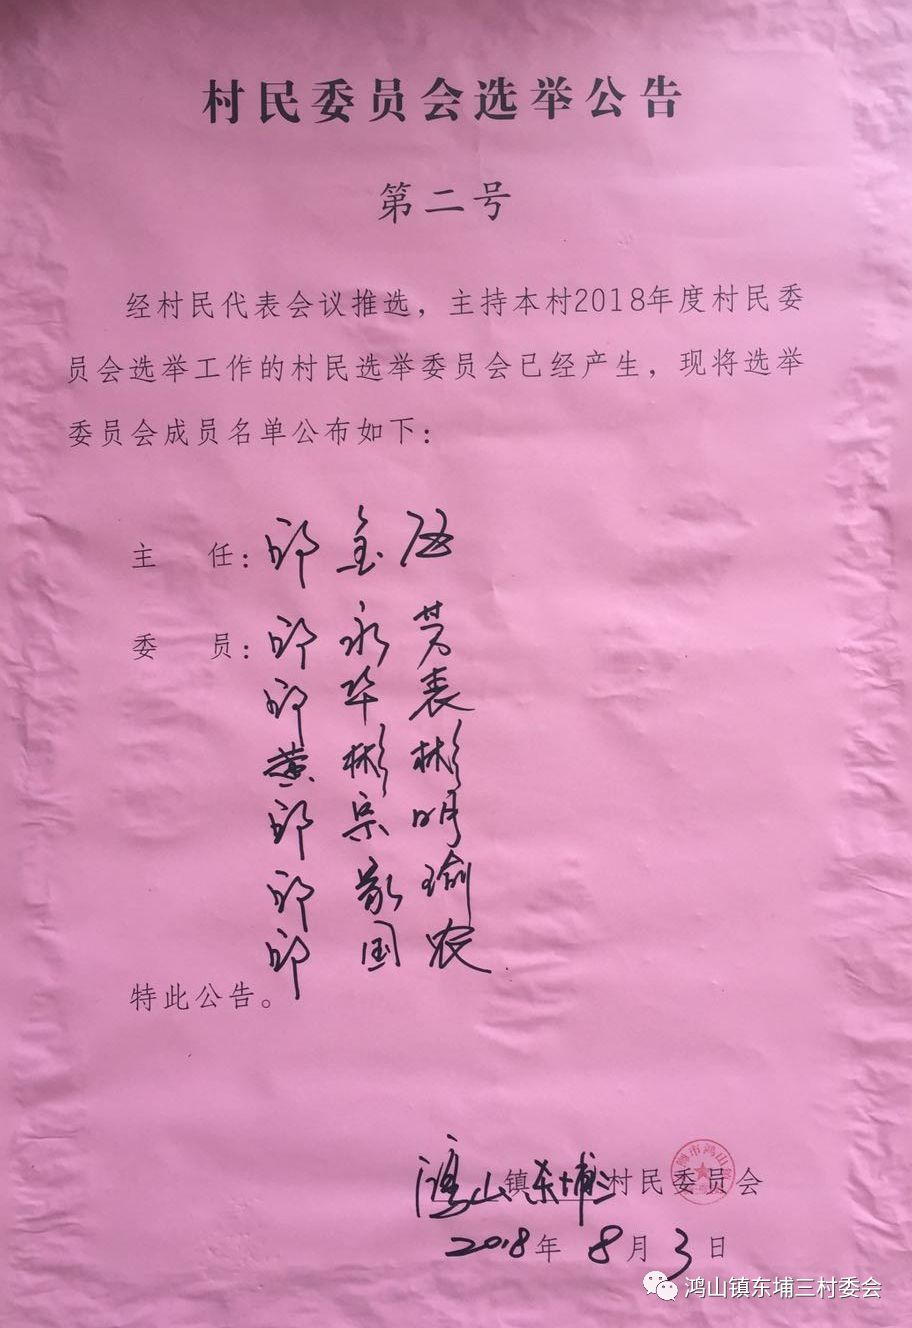 村民委员会选举公告
第二号
经村民代表会议推选，主持本村2018年度村民委
员会选举工作的村民选举委员会已经产生，现将选举
委员会成员名单公布如下：
主　任：邱金
委　员：邱永芳
邱华表
黄彬彬
邱宗明
邱瑜
邱国农
特此公告。
鸿山镇东埔三村民委员会
2018年8月3日
鸿山镇东埔三村委会